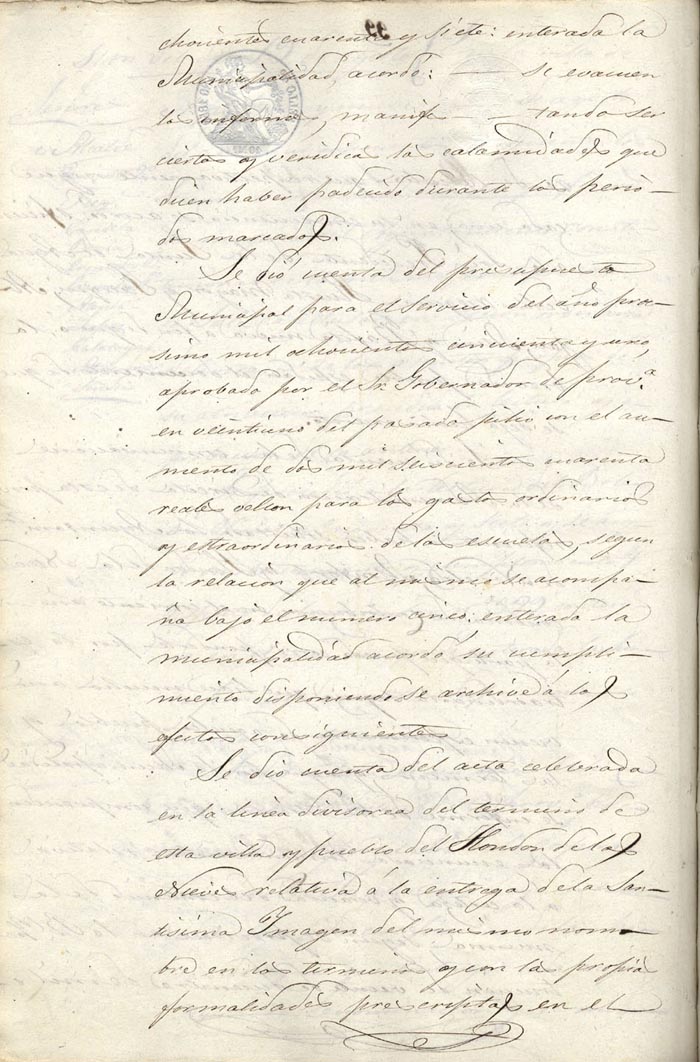 chocientos cuarenta y siete: enterada la
Municipalidad, acordó: — se evacuen
los informes, manifes — tando ser
ciertas y veridicas las calamidades que
dicen haber padecido durante los perio-
dos marcados.
Se dió cuenta del presupuesto
Municipal para el servicio del año pro-
simo mil ochocientos cincuenta y uno,
aprobado por el Sr. Gobernador de prov.a
en veintiuno del pasado julio con el au-
mento de dos mil seiscientos cuarenta
reales vellon para los gastos ordinarios
y estraordinarios de las escuelas, segun
la relacion que al mismo se acompa-
ña bajo el numero cinco: enterada la
municipalidad acordó su cumpli-
miento disponiendo se archive á los
efectos consiguientes
Se dió cuenta del acta celebrada
en la linea divisorea del termino de
esta villa y pueblo del Hondon de las
Nieves relativa á la entrega de la San-
tisima Imagen del mismo nom-
bre en los terminos y con las propias
formalidades prescriptas en el